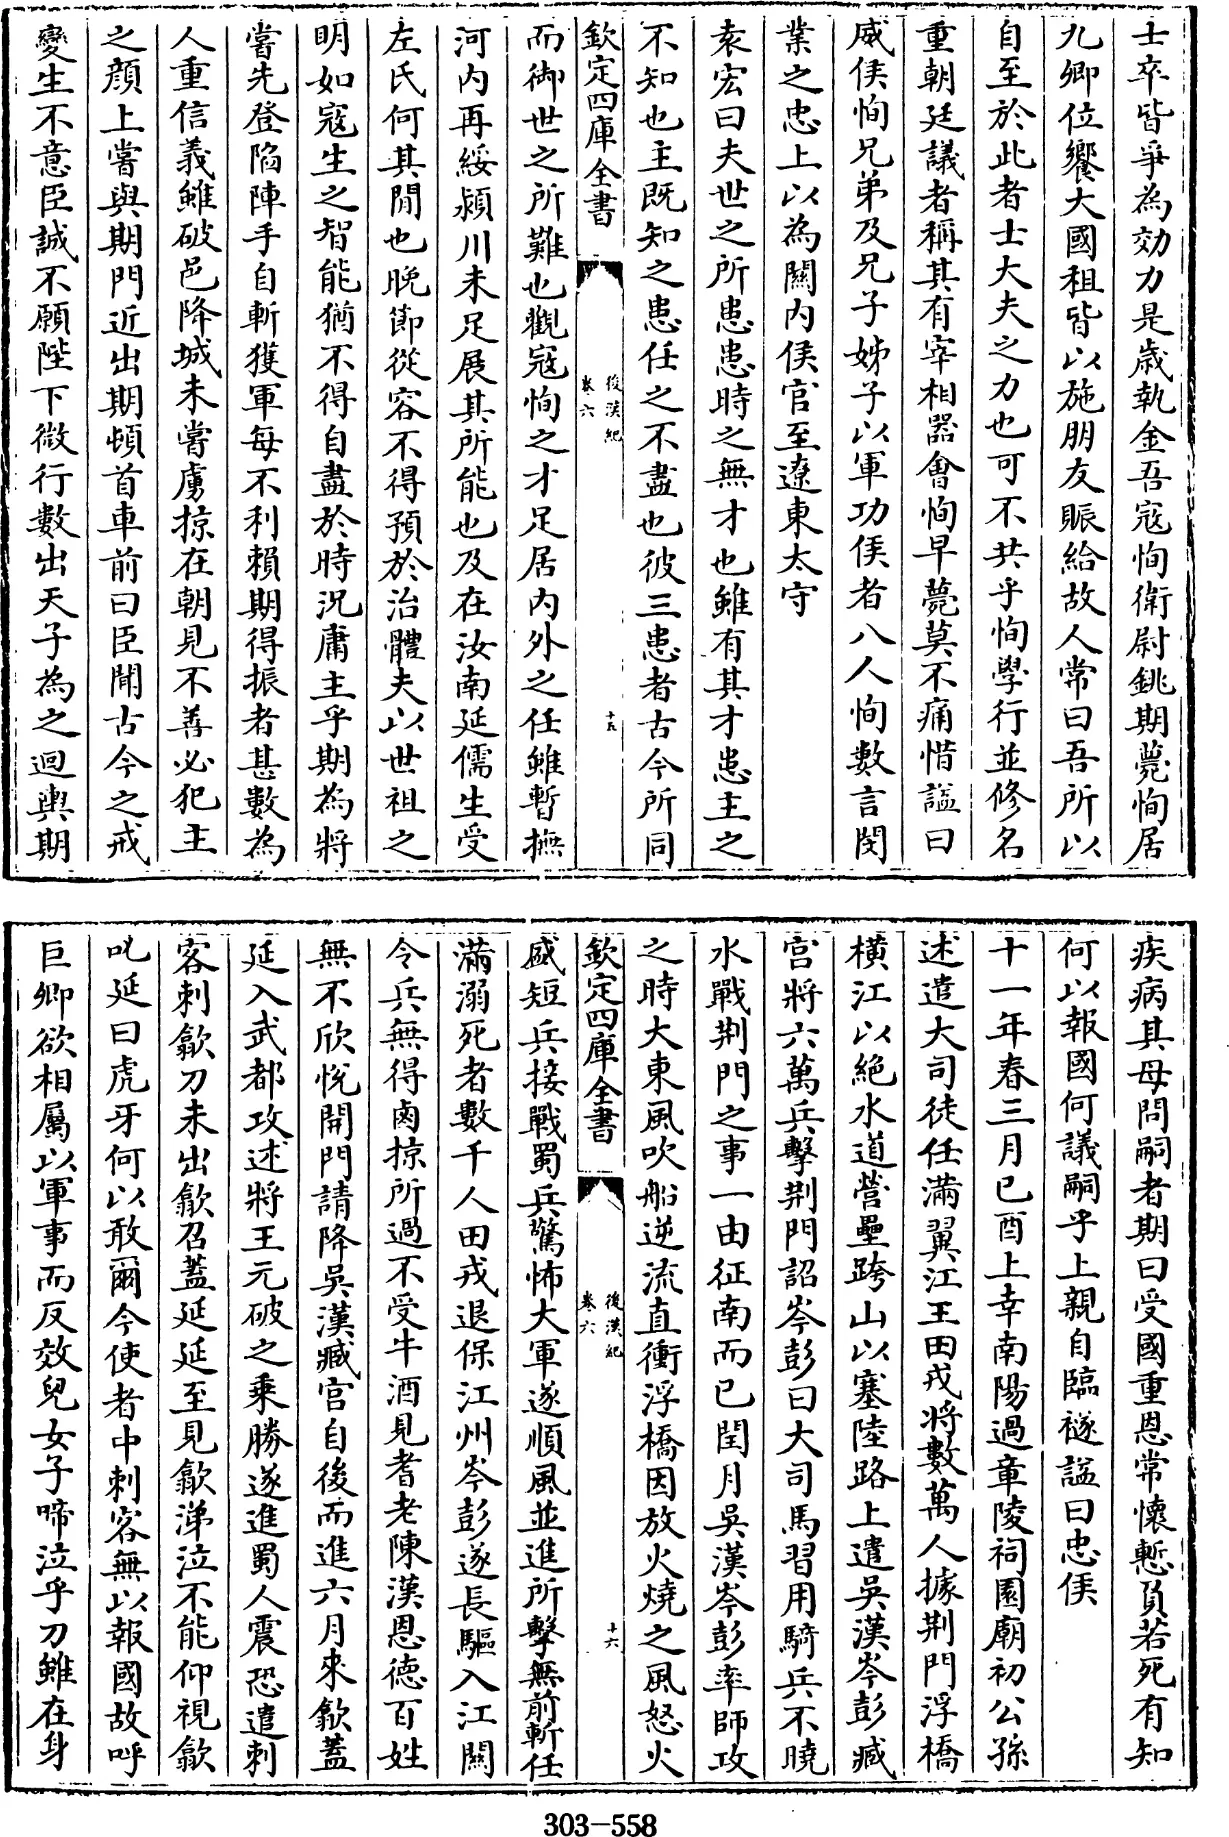 士卒皆爭為効力是歲執金吾寇恂衛尉銚期薨恂居
九卿位饗大國租皆以施朋友賑給故人常曰吾所以
自至於此者士大夫之力也可不共乎恂學行並修名
重朝廷議者稱其有宰相器會恂早薨莫不痛惜謚曰
威侯恂兄弟及兄子姊子以軍功侯者八人恂數言閔
業之忠上以為關內侯官至遼東太守
袁宏曰夫世之所患患時之無才也雖有其才患主之
不知也主既知之患任之不盡也彼三患者古今所同
欽定四庫全書
後漢紀
卷六
十五
而御世之所難也觀寇恂之才足居內外之任雖暫撫
河內再綏潁川未足展其所能也及在汝南延儒生受
左氏何其閒也晚節從容不得預於治體夫以世祖之
明如寇生之智能猶不得自盡於時況庸主乎期為將
嘗先登陷陣手自斬獲軍每不利賴期得振者甚數為
人重信義雖破邑降城未嘗虜掠在朝見不善必犯主
之顏上嘗與期門近出期頓首車前曰臣聞古今之戒
變生不意臣誠不願陛下微行數出天子為之迴輿期
疾病其母問嗣者期曰受國重恩常懷慙負若死有知
何以報國何議嗣乎上親自臨襚謚曰忠侯
十一年春三月己酉上幸南陽過章陵祠園廟初公孫
述遣大司徒任滿翼江王田戎將數萬人據荆門浮橋
橫江以絕水道營壘跨山以塞陸路上遣吳漢岑彭臧
宮將六萬兵擊荆門詔岑彭曰大司馬習用騎兵不曉
水戰荆門之事一由征南而已閏月吳漢岑彭率師攻
之時大東風吹船逆流直衝浮橋因放火燒之風怒火
欽定四庫全書
後漢紀
卷六
十六
盛短兵接戰蜀兵驚怖大軍遂順風並進所擊無前斬任
滿溺死者數千人田戎退保江州岑彭遂長驅入江關
令兵無得鹵掠所過不受牛酒見耆老陳漢恩德百姓
無不欣悅開門請降吳漢臧宮自後而進六月來歙蓋
延入武都攻述將王元破之乘勝遂進蜀人震恐遣刺
客刺歙刀未出歙召蓋延延至見歙涕泣不能仰視歙
叱延曰虎牙何以敢爾今使者中刺客無以報國故呼
巨卿欲相屬以軍事而反效兒女子啼泣乎刀雖在身
303-558